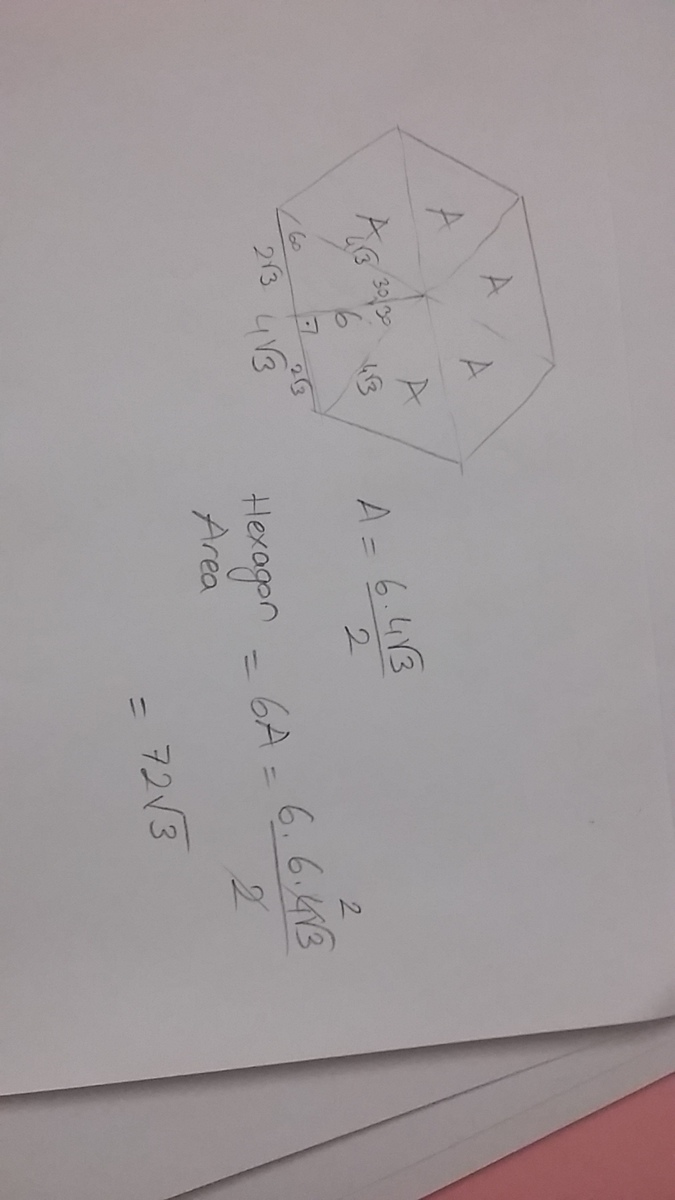 A
A
A
A
A
4√3
30
30
60
6
4√3
2√3
2√3
4√3
A = 6.4√3 / 2
Hexagon Area = 6A = 6.6.4√3 / 2
2
= 72√3